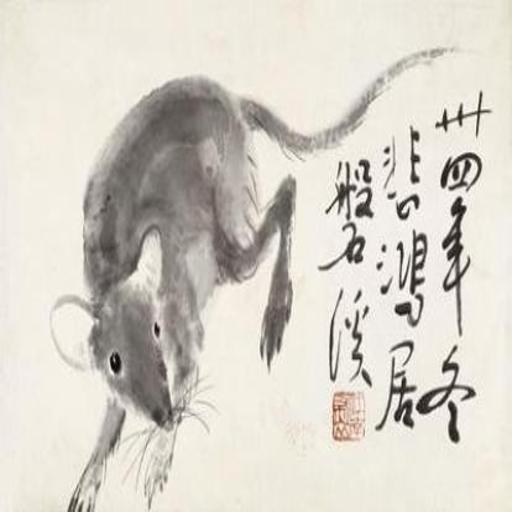 卅四年冬
悲鴻居
般石溪